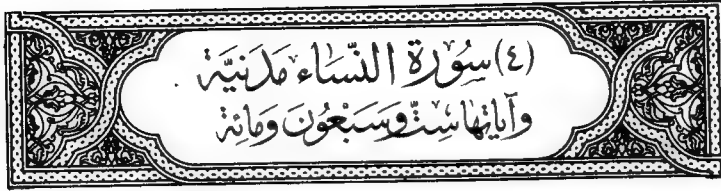 (٤) سُورَة النِّسَاء مَدَنيَّة
وَآيَاتهَا سِتٌّ وَسَبْعُونَ وَمَائة